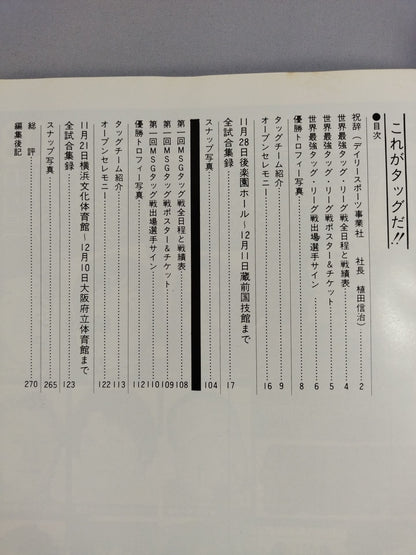 これがタッグだ!!
●目次
祝辞（デイリースポーツ事業社　社長　植田信治）……2
世界最強タッグ・リーグ戦全日程と戦績表……4
世界最強タッグ・リーグ戦ポスター&チケット……5
世界最強タッグ・リーグ戦出場選手サイン……6
優勝トロフィー写真……8
タッグチーム紹介……9
オープンセレモニー……16
11月28日後楽園ホール〜12月11日蔵前国技館まで
全試合集録……17
スナップ写真……104
第一回MSGタッグ戦全日程と戦績表……108
第一回MSGタッグ戦ポスター&チケット……109
第一回MSGタッグ戦出場選手サイン……110
優勝トロフィー写真……112
タッグチーム紹介……113
オープンセレモニー……122
11月21日横浜文化体育館〜12月10日大阪府立体育館まで
全試合集録……123
スナップ写真……265
総　評……270
編集後記